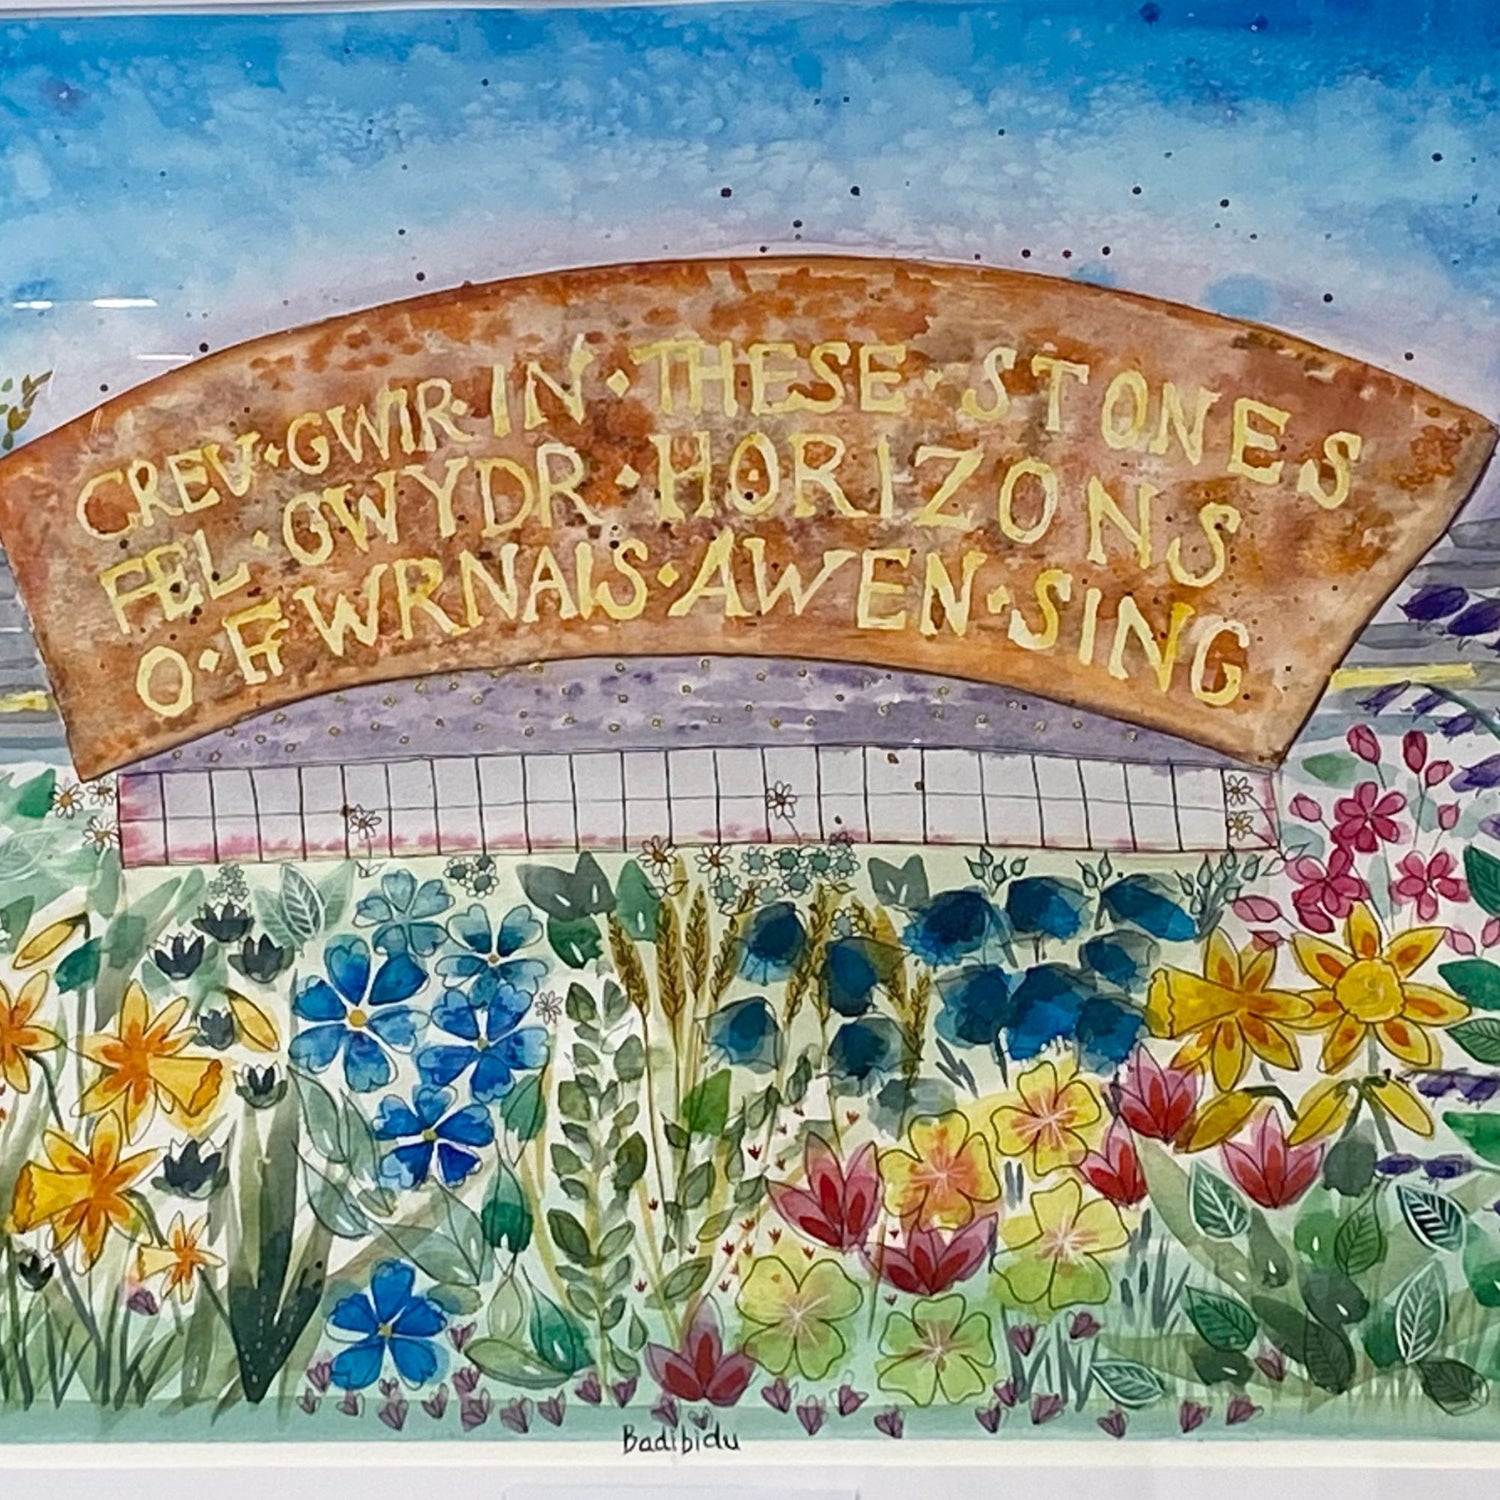 CREU·GWIR·IN·THESE·STONES
FEL·GWYDR·HORIZONS
O·FFWRNAIS·AWEN·SING
Badibidu